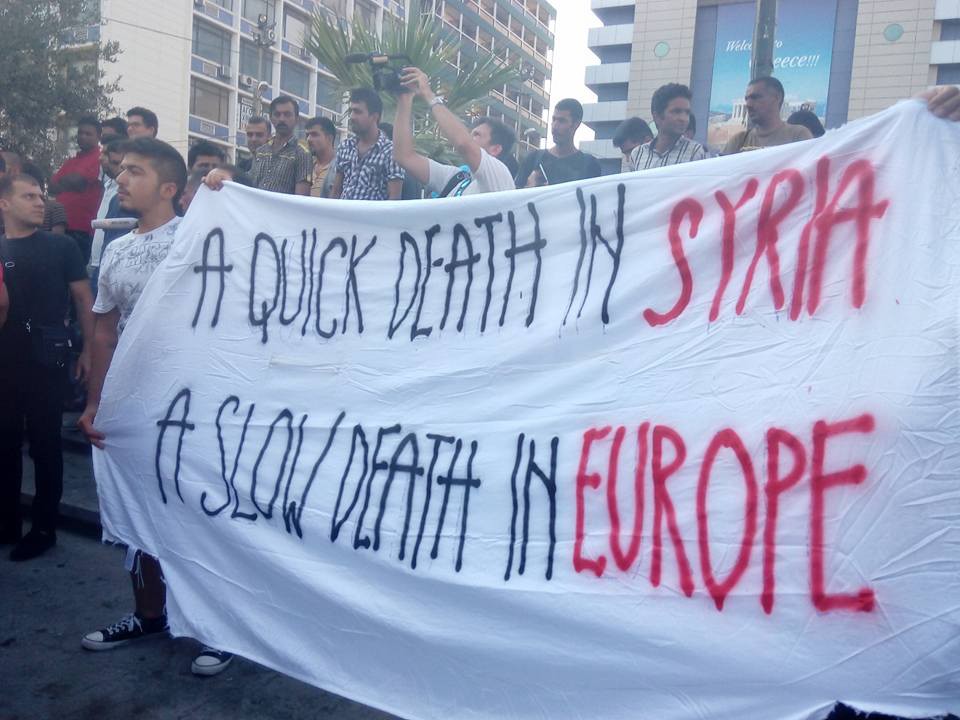 Welcome to
Greece!!!
A QUICK DEATH IN SYRIA
A SLOW DEATH IN EUROPE